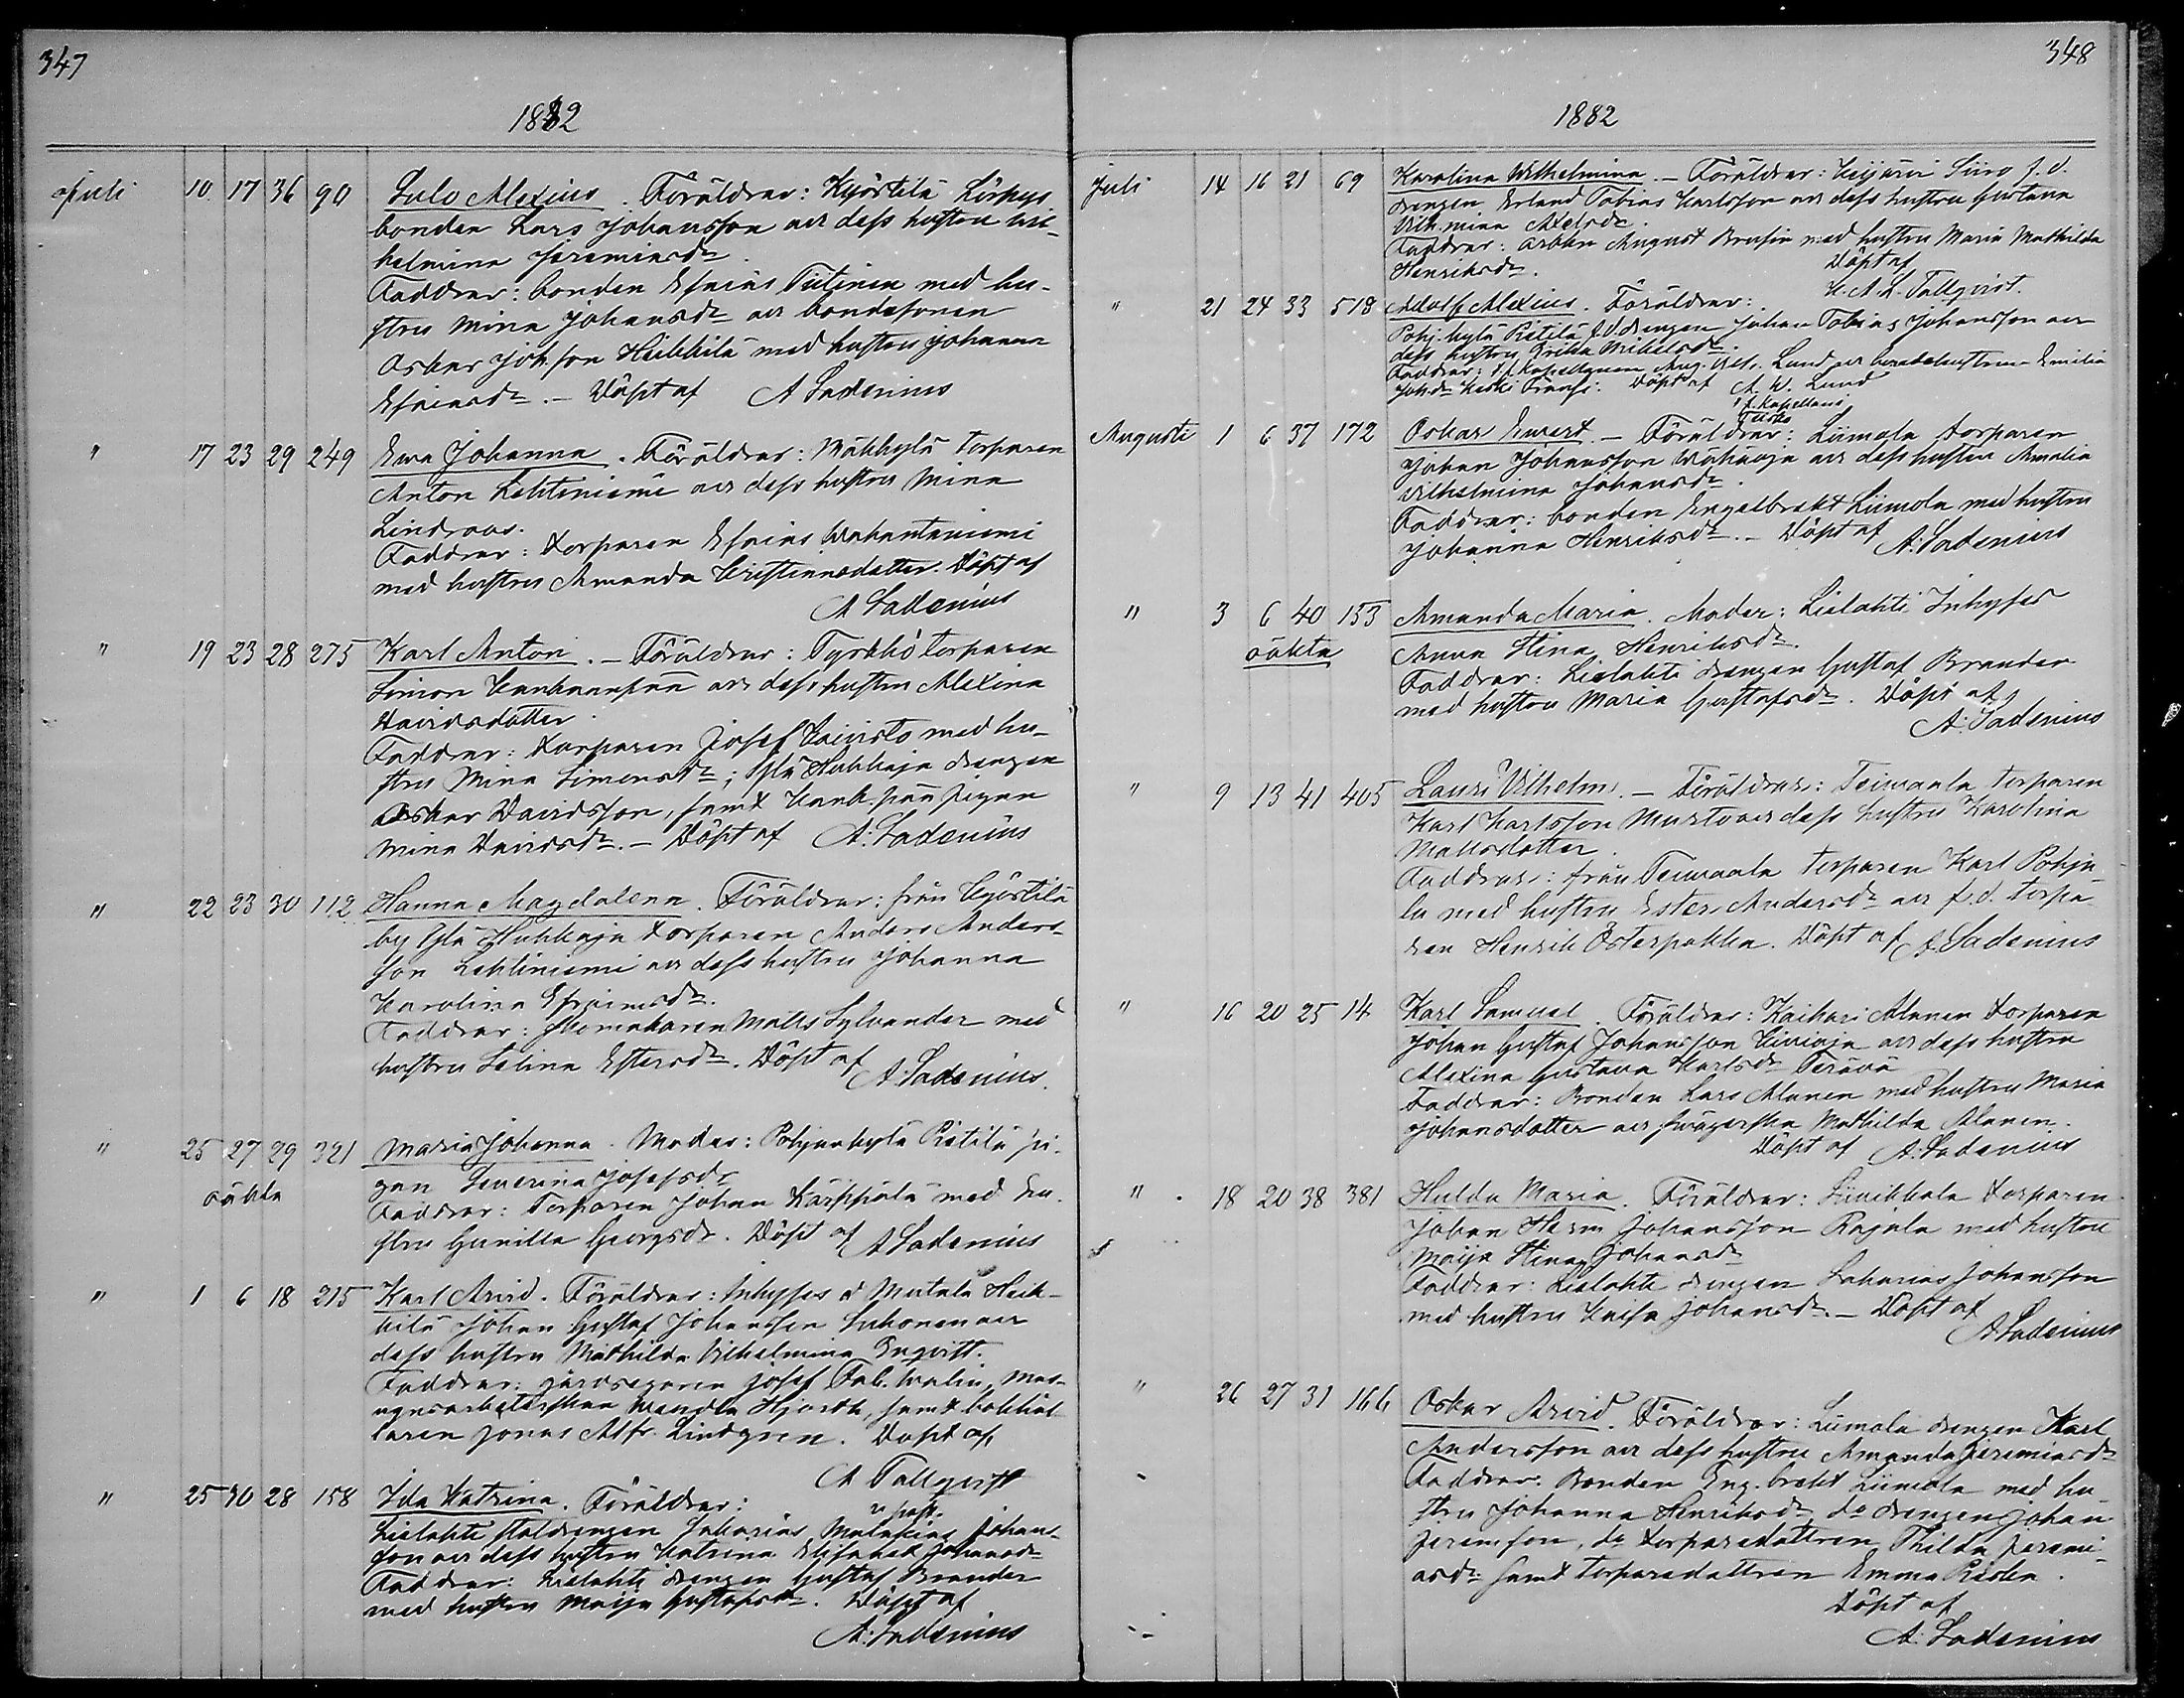 347
1882
Juli 10 17 36 90 Sulo Alexius. Föräldrar: Kyöstilä Lörpys
bonden Lars Johansson och dess hustru Wil-
helmina Jeremiasdr.
Faddrar: bonden Efraim Tiitinen med hu-
stru Mina Johansdr och bondesonen
Oskar Johsson Heikkilä med hustru Johanna
Efraimsdr. – Döpt af A Ladenius
" 17 23 29 249 Ewa Johanna. Föräldrar: Mäkkylä torparen
Anton Lehtiniemi och dess hustru Mina
Lindroos.
Faddrar: torparen Efraim Wahantaniemi
med hustru Amanda Christinnedotter. Döpt af
A Ladenius
" 19 23 28 275 Karl Anton. – Föräldrar: Tyrkkö torparen
Simon Kankaanpää och dess hustru Alexina
Davidsdotter.
Faddrar: torparen Josef Koivisto med hu-
stru Mina Simonsdr; Ylä Hukkaja drengen
Oskar Davidsson, samt Kank.pää pigan
Mina Davidsdr. – Döpt af A. Ladenius
" 22 23 30 112 Hanna Magdalena. Föräldrar: från Kyöstilä
by Ylä Hukkaja torparen Anders Anders-
son Lehtiniemi och dess hustru Johanna
Karolina Efraimsdr.
Faddrar: skomakaren Matts Sylvander med
hustru Selina Estersdr. Döpt af
A. Ladenius.
" 25 27 29 321 Maria Johanna. Moder: Pohjankylä Pietilä pi-
oäkta gan Severina Josefsdr
Faddrar: Torparen Johan Kärppälä med hu-
stru Gunilla Georgsdr. Döpt af A Ladenius
" 1 6 18 215 Karl Arvid. Föräldrar: Inhyses å Mutala Heik-
kilä Johan Gustaf Johansson Suhonen och
dess hustru Mathilda Vilhelmina Engvist.
Faddrar: gårdsegaren Josef Fab. Walin,
Wendla Hjorth, samt bokhål-
laren Jonas Alfr. Lindgren. Döpt af
A Tallqvist
v. past.
" 25 30 28 158 Ida Katrina. Föräldrar:
Lielahti staldrengen Sakarias Malakias Johans-
son och dess hustru Katrina Elisabet Johansdr
Faddrar: Lielahti drengen Gustaf Brander
med hustru Maija Gustafsdr. Döpt af
A. Ladenius
348
1882
Juli 14 16 21 69 Karolina Wilhelmina. – Föräldrar: Keijäri Siiro f.d.
drengen Erland Tobias Karlsson och dess hustru Gustava
Vilhmina Axelsdr
Faddrar: arbkn August Brusin med hustru Maria Mathilda
Henriksdr. Döpt af
K. A. L. Tallqvist.
" 21 24 33 518 Adolf Alexius. Föräldrar:
Pohj.kylä Pietilä f.d. drengen Johan Tobias Johansson och
dess hustru Erika Mikelsdr.
Faddrar: v.f. Kapellanen Aug. Wil. Lund och bondehustrun Emilia
Johdr Keski Fransi. Döpt af A. W. Lund
v.f. Kapellan i
Teisko
Augusti 1 6 37 172 Oskar Ewert. – Föräldrar: Liimola torparen
Johan Johansson Wähäoja och dess hustru Amalia
Vilhelmina Johansdr.
Faddrar: bonden Engelbrekt Liimola med hustru
Johanna Henriksdr. – Döpt af A. Ladenius
" 3 6 40 153 Amanda Maria. Moder: Lielahti Inhyses
oäkta Anna Stina Henriksdr.
Faddrar: Lielahti drengen Gustaf Brander
med hustru Maria Gustafsdr. Döpt af
A. Ladenius
" 9 13 41 405 Lauri Vilhelm. – Föräldrar: Teivaala torparen
Karl Karlsson Murto och dess hustru Karolina
Mattsdotter.
Faddrar: från Teivaala torparen Karl Pohjo-
la med hustru Ester Andersdr och f.d. torpa-
ren Henrik Österpakka. Döpt af A. Ladenius
" 16 20 25 14 Karl Samuel. Föräldrar: Kaihari Alanen torparen
Johan Gustaf Johansson Kivioja och dess hustru
Alexina Gustava Karlsdr Terävä
Faddrar: Bonden Lars Alanen med hustru Maria
Johansdotter och svägerska Mathilda Alanen.
Döpt af A. Ladenius
" 18 20 38 381 Hulda Maria. Föräldrar: Siivikkala torparen
Johan Herm Johansson Rajala med hustru
Maija Stina Johansdr
Faddrar: Lielahti drengen Sakarias Johansson
med hustru Kaisa Johansdr. – Döpt af
A Ladenius
" 26 27 31 166 Oskar Arvid. Föräldrar: Liimola drengen Karl
Andersson och dess hustru Amanda Jeremiasdr
Faddrar: Bonden Eng.brekt Liimola med hu-
stru Johanna Henriksdr, do drengen Johan
Jeremson, do torparedottren Thilda Jeremi-
asdr samt torparedottren Emma
Döpt af
A. Ladenius